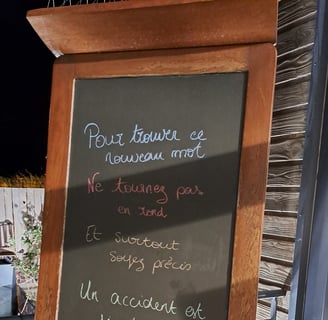 Pour trouver ce
nouveau mot
Ne tournez pas
en rond
Et surtout
soyez précis
Un accident est